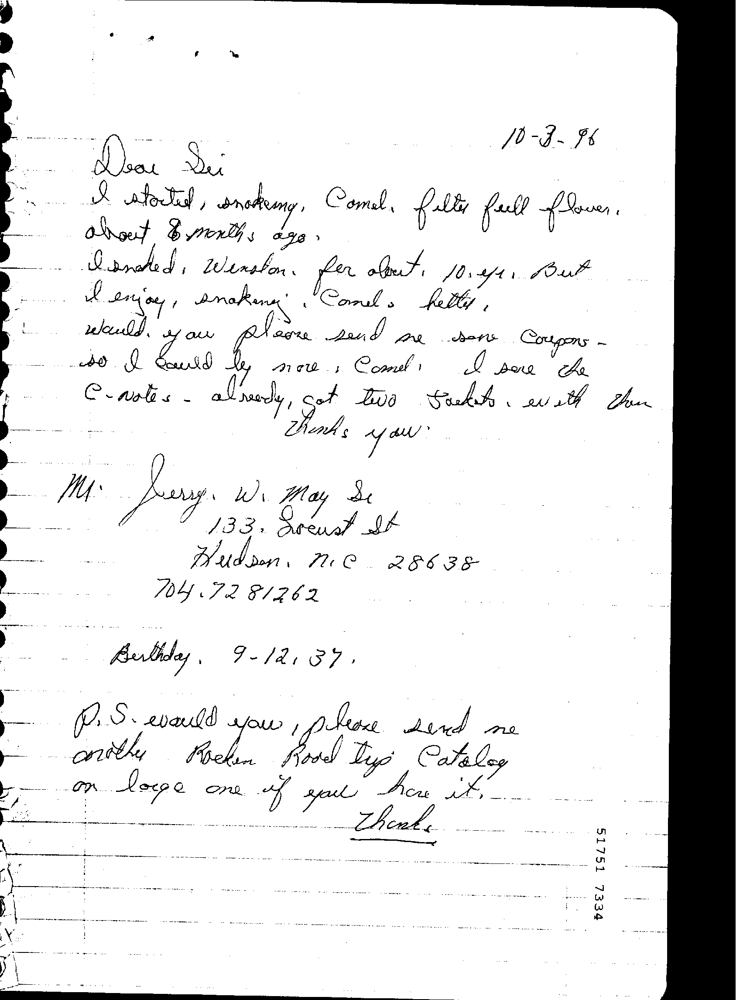 10-3-96
Dear Sir
I started, smokeing, Camel. filter full flaver.
about 8 months ago.
I smoked, Winston. for about. 10. yr. But
I enjoy, smokeing, Camels better,
would. you please send me some Coupons -
so I Could by more, Camel, I save the
C-notes - already, got two Jackets. with them
Thanks you.
Mr. Jerry. W. May Sr
133. Locust St
Hudson. N.C 28638
704.7281262
Birthday. 9-12, 37.
P.S. would you, please send me
another Rocken Road Trip Catalog
on large one if you have it.
Thanks
51751 7334